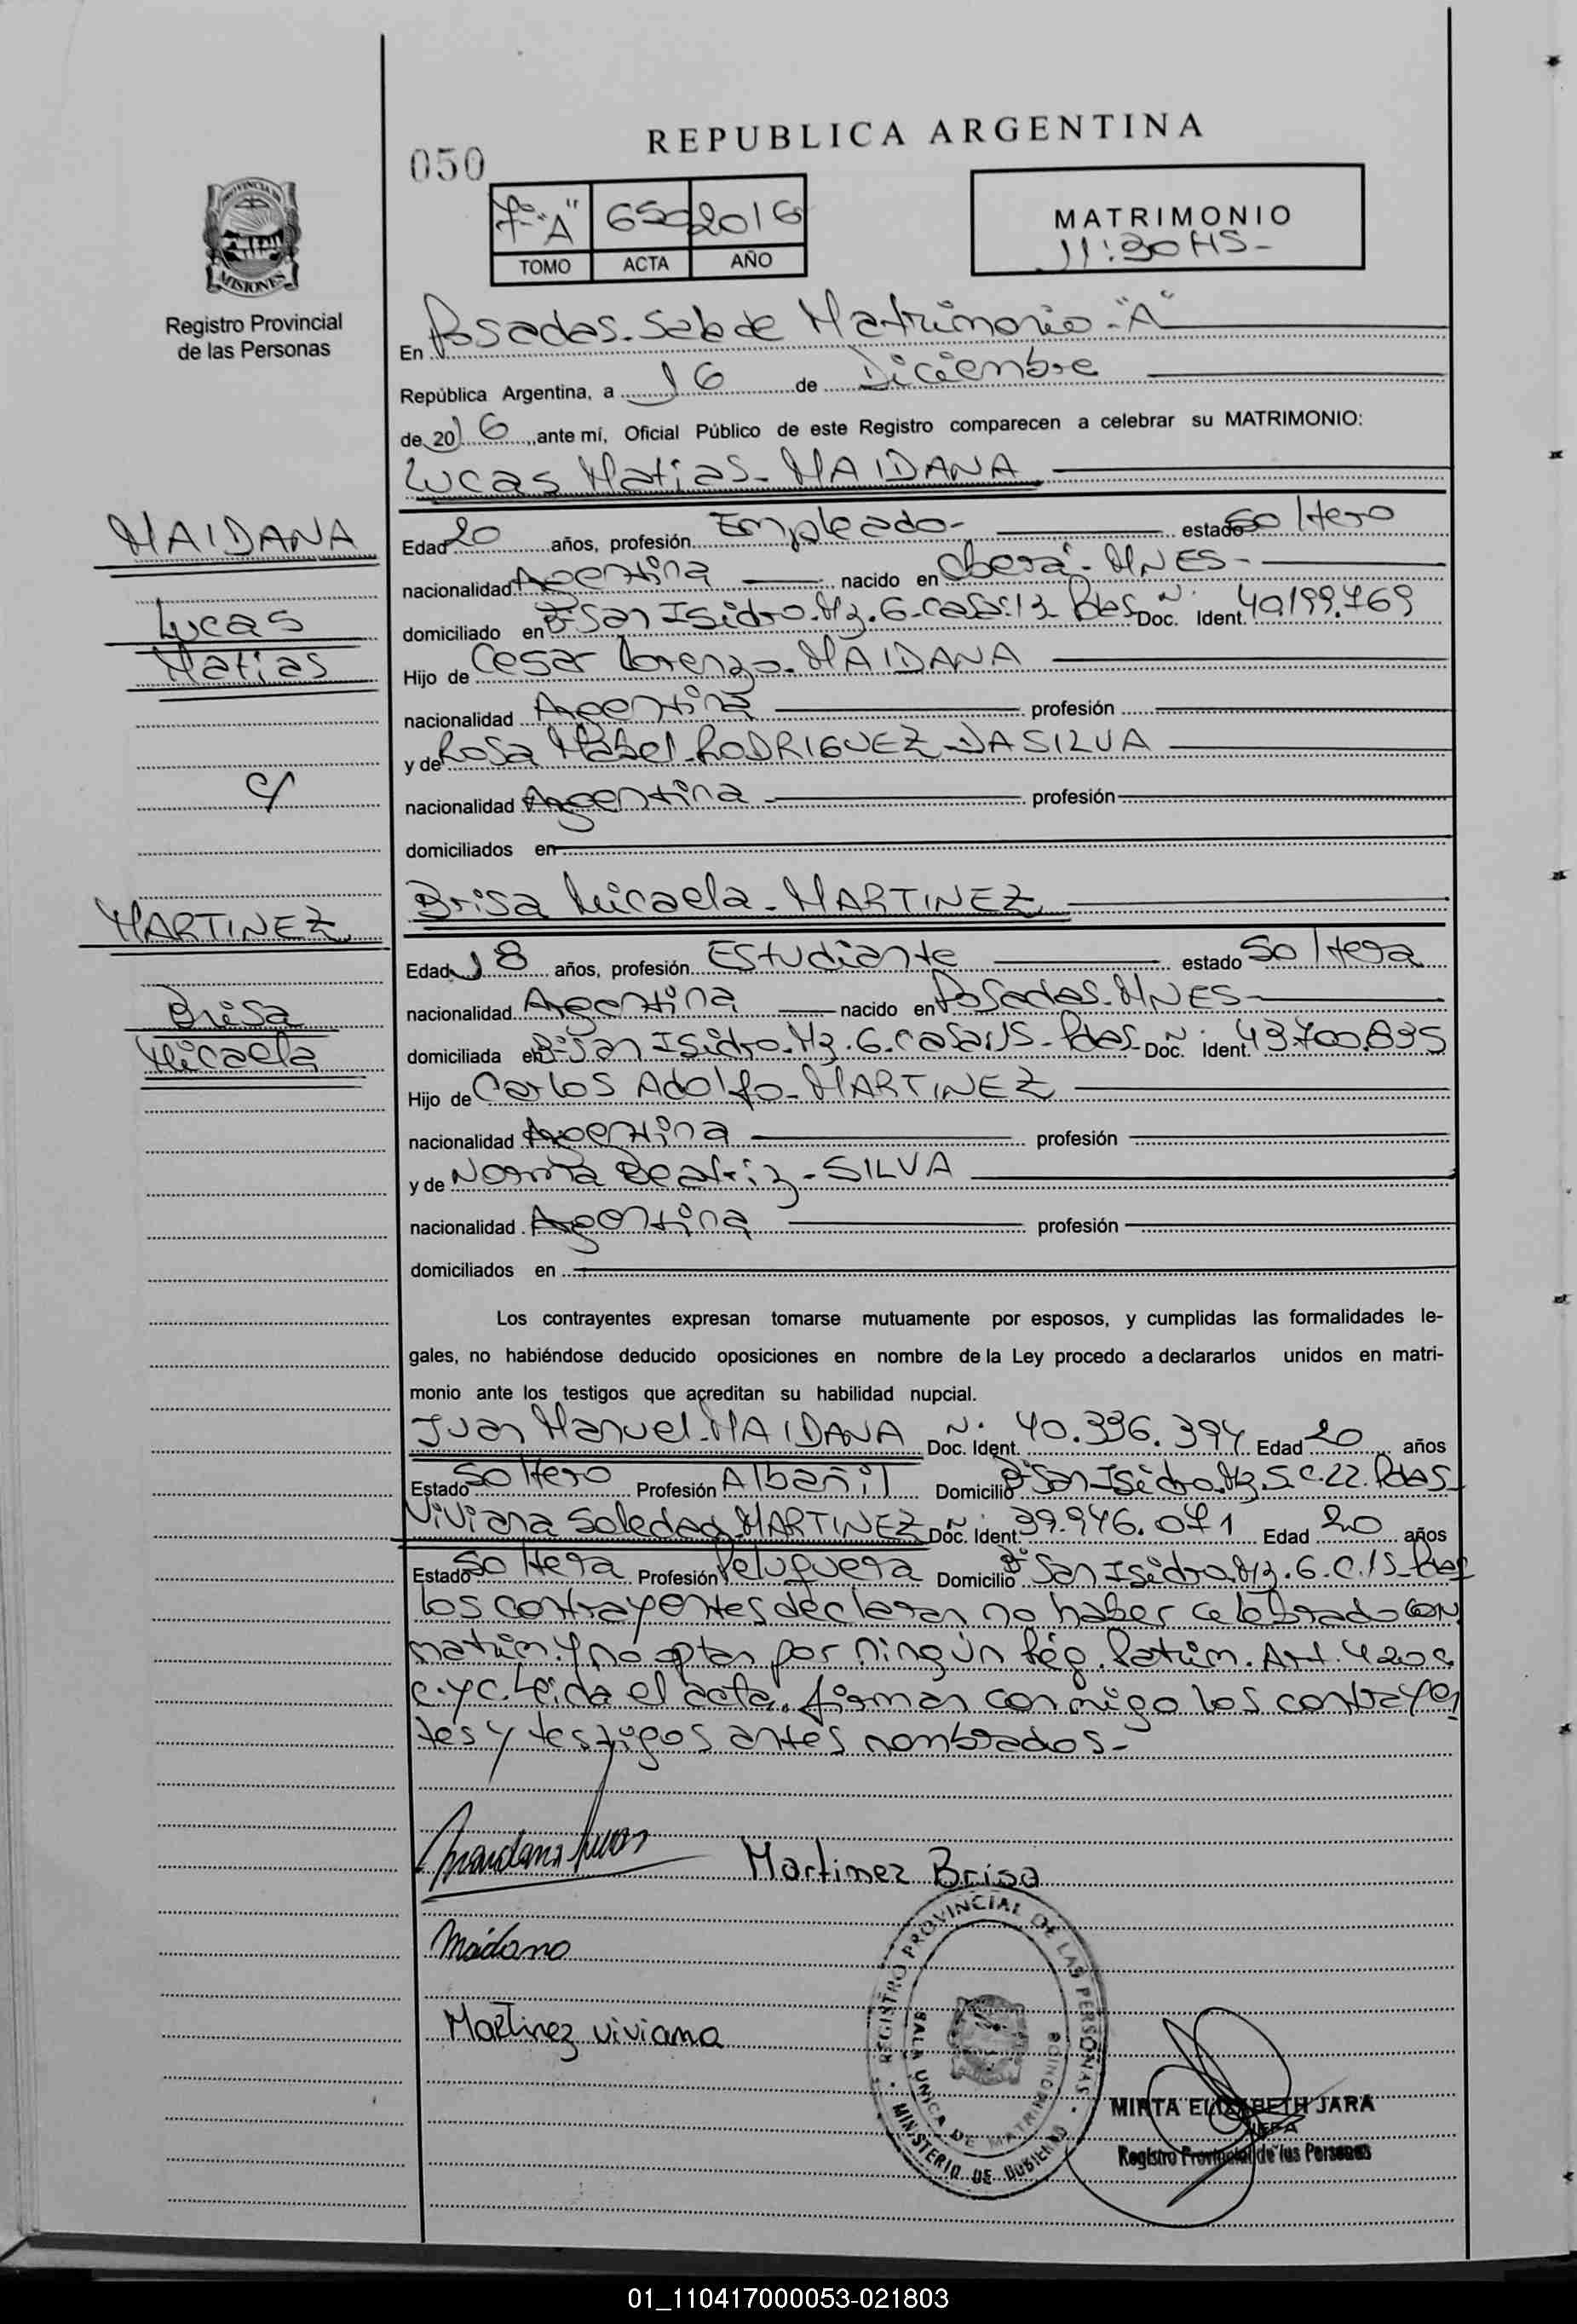 REPUBLICA ARGENTINA
050
7º "A" 650 2016
TOMO ACTA AÑO
MATRIMONIO
11:30 HS-
PROVINCIA DE
MISIONES
Registro Provincial
de las Personas
En Posadas. Sala de Matrimonio-"A"
República Argentina, a 16 de Diciembre
de 2016, ante mí, Oficial Público de este Registro comparecen a celebrar su MATRIMONIO:
Lucas Matias- MAIDANA
MAIDANA
Lucas
Matias
c/
Edad 20 años, profesión Empleado- estado Soltero
nacionalidad Argentina nacido en Oberá- MNES-
domiciliado en Bº San Isidro. Mz. 6- casa: 13- Pdas Doc. Nº Ident. 40.199.769
Hijo de Cesar Lorenzo- MAIDANA
nacionalidad Argentina profesión
y de Rosa Mabel- RODRIGUEZ DASILVA
nacionalidad Argentina profesión
domiciliados en
Brisa Micaela- MARTINEZ
MARTINEZ
Brisa
Micaela
Edad 18 años, profesión Estudiante estado Soltera
nacionalidad Argentina nacido en Posadas- MNES-
domiciliada en Bº San Isidro. Mz. 6. casa: 15- Pdas- Doc. Nº Ident. 43.700.835
Hijo de Carlos Adolfo- MARTINEZ
nacionalidad Argentina profesión
y de Norma Beatriz- SILVA
nacionalidad Argentina profesión
domiciliados en
Los contrayentes expresan tomarse mutuamente por esposos, y cumplidas las formalidades le-
gales, no habiéndose deducido oposiciones en nombre de la Ley procedo a declararlos unidos en matri-
monio ante los testigos que acreditan su habilidad nupcial.
Juan Manuel- MAIDANA Doc. Nº Ident. 40.336.394 Edad 20 años
Estado Soltero Profesión Albañil Domicilio Bº San Isidro. Mz 5. C. 22. Pdas-
Viviana Soledad- MARTINEZ Doc. Nº Ident. 39.946.071 Edad 20 años
Estado Soltera Profesión Peluquera Domicilio Bº San Isidro. Mz. 6. C. 15- Pdas
los contrayentes declaran no haber celebrado CON.
matrim. y no optan por ningún Rég. Patrim. Art. 420
C. y C. Leída el acta, firman conmigo los contrayen
tes y testigos antes nombrados-
Maidana Lucas Martinez Brisa
Maidana
Martinez viviana
REGISTRO PROVINCIAL DE LAS PERSONAS
SALA UNICA DE MATRIMONIO
MINISTERIO DE GOBIERNO
MIRTA ELIZABETH JARA
JEFA
Registro Provincial de las Personas
01_110417000053-021803